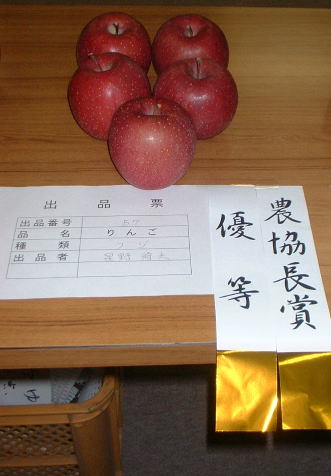 出品票
出品番号 57
品名 りんご
種類 フジ
出品者 星野
農協長賞
優等